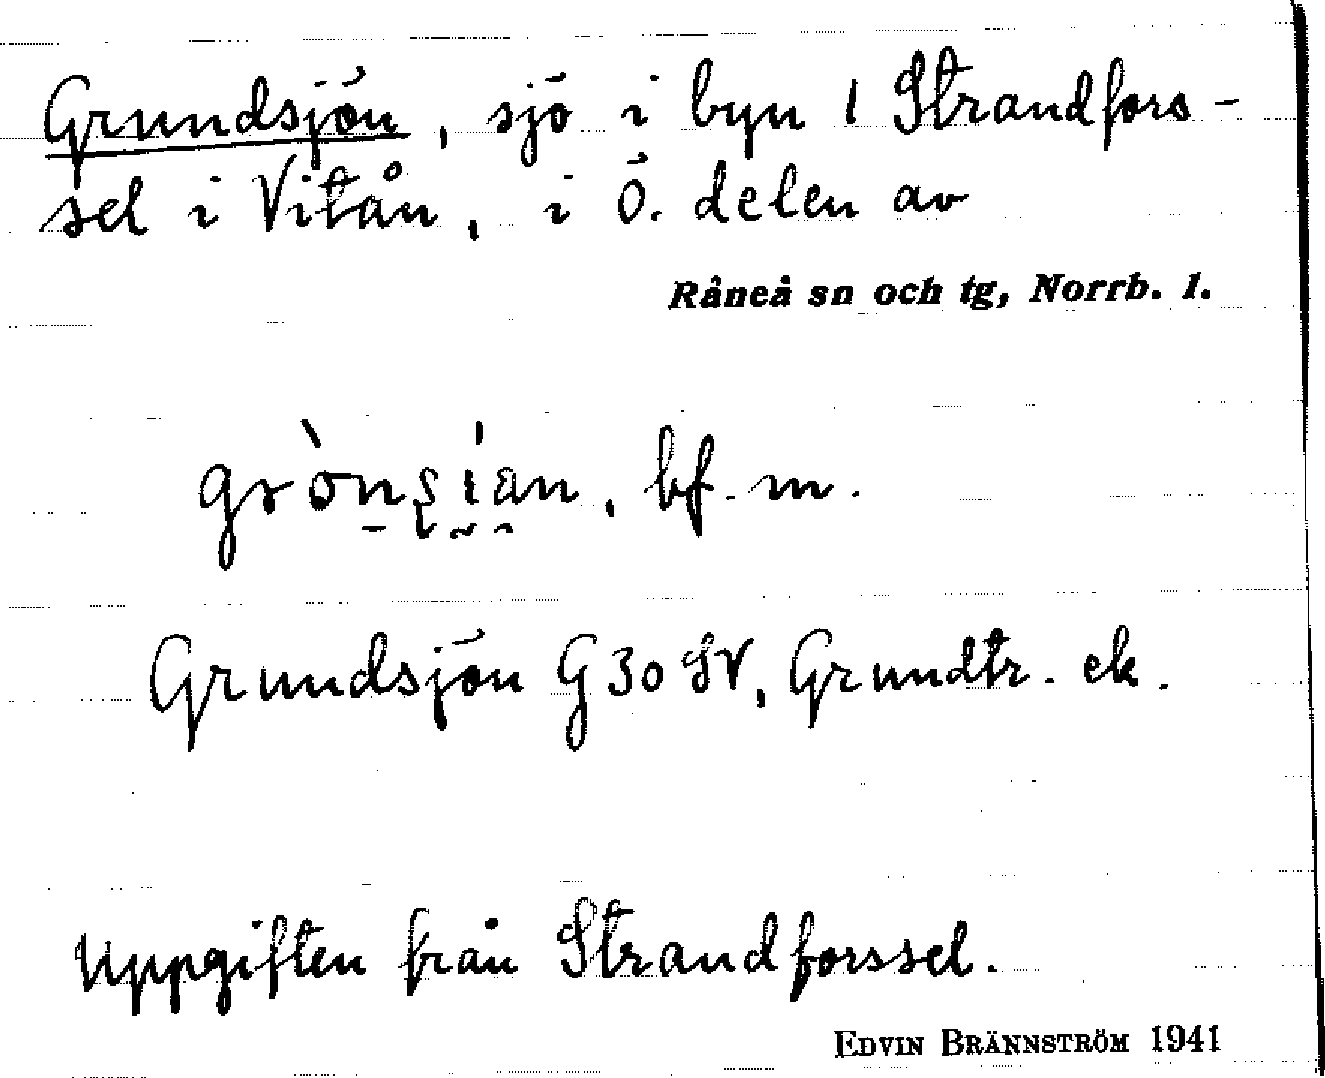 Grundsjön, sjö i byn 1 Strandfors-
sel i Vitån, i ö. delen av
Råneå sn och tg, Norrb. l.
bf. m.
Grundsjön G 30 SV, Grundtr. ek.
Uppgiften från Strandforssel.
EDVIN BRÄNNSTRÖM 1941